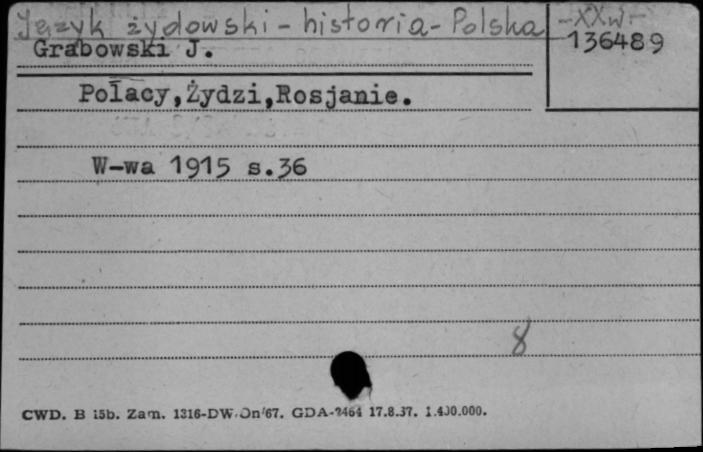 Język żydowski - historia - Polska - XX w. -
Grabowski J.
136489
Polacy,Żydzi,Rosjanie.
W-wa 1915 s.36
8
CWD. B 15b. Zam. 1316-DW-Dn/67. GDA-2464 17.8.37. 1.400.000.